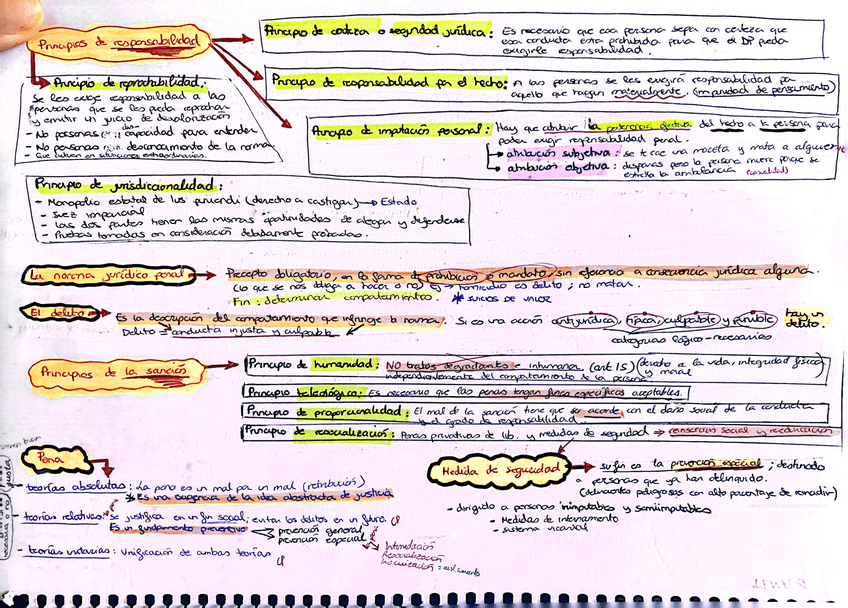 Principios de responsabilidad
Principio de certeza o seguridad jurídica: Es necesario que esa persona sepa con certeza que
esa conducta está prohibida para que el DP pueda
exigirle responsabilidad.
Principio de responsabilidad por el hecho: A las personas se les exigirá responsabilidad por
aquello que hagan materialmente. (impunidad de pensamiento)
Principio de reprochabilidad:
Se les exige responsabilidad a las
personas que se les pueda reprochar
y emitir un juicio de desvalorización
- No personas sin capacidad para entender
- No personas desconocimiento de la norma
- Que actúen en situaciones extraordinarias.
Principio de imputación personal: Hay que atribuir la pertenencia objetiva del hecho a la persona para
poder exigir responsabilidad penal.
atribución subjetiva: se te cae una maceta y mata a alguien
atribución objetiva: disparas pero la persona muere porque se
estrella la ambulancia (causalidad)
Principio de jurisdiccionalidad:
- Monopolio estatal de ius puniendi (derecho a castigar) → Estado
- Juez imparcial
- Las dos partes tienen las mismas oportunidades de alegar y defenderse
- Pruebas tomadas en consideración debidamente probadas.
La norma jurídico penal → Precepto obligatorio, en la forma de prohibición o mandato, sin referencia a consecuencia jurídica alguna.
(lo que se nos obliga a hacer o no) ej → homicidio es delito; no matar.
Fin: determinar comportamientos. * juicios de valor
El delito → Es la descripción del comportamiento que infringe la norma. Si es una acción antijurídica, típica, culpable y punible hay un
delito.
Delito = conducta injusta y culpable
categorías lógico-necesarias
Principios de la sanción
Principio de humanidad: NO tratos degradantes e inhumanos (art 15) (derecho a la vida, integridad física
y moral)
independientemente del comportamiento de la persona
Principio teleológico: Es necesario que las penas tengan fines específicos aceptables.
Principio de proporcionalidad: El mal de la sanción tiene que ser acorde con el daño social de la conducta
y el grado de responsabilidad.
Principio de resocialización: Penas privativas de lib. y medidas de seguridad → reinserción social y reeducación
Pena
- teorías absolutas: La pena es un mal por un mal (retribución)
* Es una exigencia de la idea abstracta de justicia
- teorías relativas: se justifica en un fin social; evitar los delitos en un futuro
Es un fundamento preventivo
prevención general
prevención especial
Intimidación
Resocialización
Inocuización = aislamiento
- teorías unitarias: Unificación de ambas teorías
Medida de seguridad → su fin es la prevención especial; destinado
a personas que ya han delinquido.
(delincuentes peligrosos con alto porcentaje de reincidir)
- dirigido a personas inimputables y semiimputables
- Medidas de internamiento
- sistema vicarial